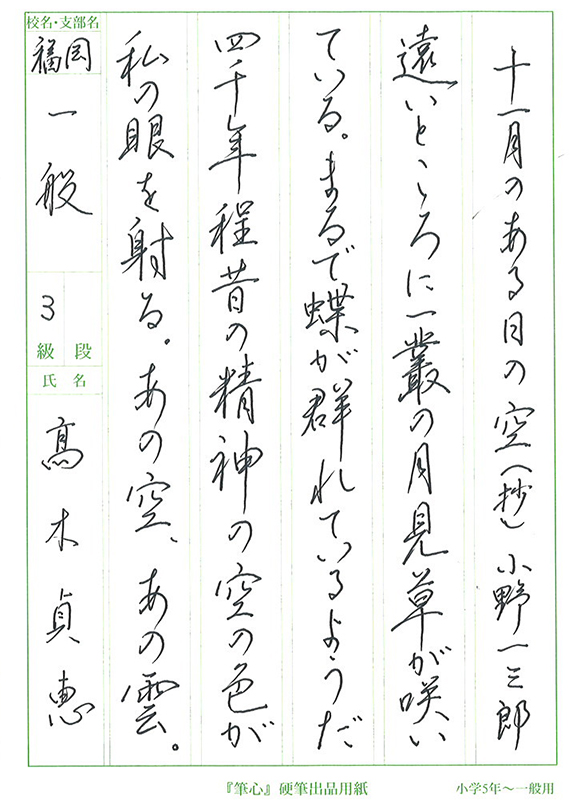 十一月のある日の空(抄) 小野十三郎
遠いところに一叢の月見草が咲い
ている。まるで蝶が群れているようだ
四千年程昔の精神の空の色が
私の眼を射る。あの空、あの雲。
校名・支部名
福岡
一般
3
級 段
氏名
髙木貞恵
『筆心』硬筆出品用紙
小学5年〜一般用